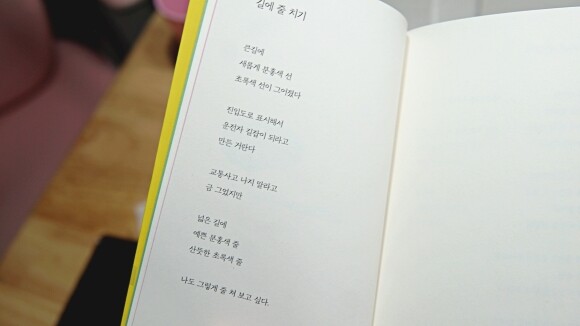 길에 줄 치기
큰길에
새롭게 분홍색 선
초록색 선이 그어졌다
진입도로 표시해서
운전자 길잡이 되라고
만든 거란다
교통사고 나지 말라고
금 그었지만
넓은 길에
예쁜 분홍색 줄
산뜻한 초록색 줄
나도 그렇게 줄 쳐 보고 싶다.